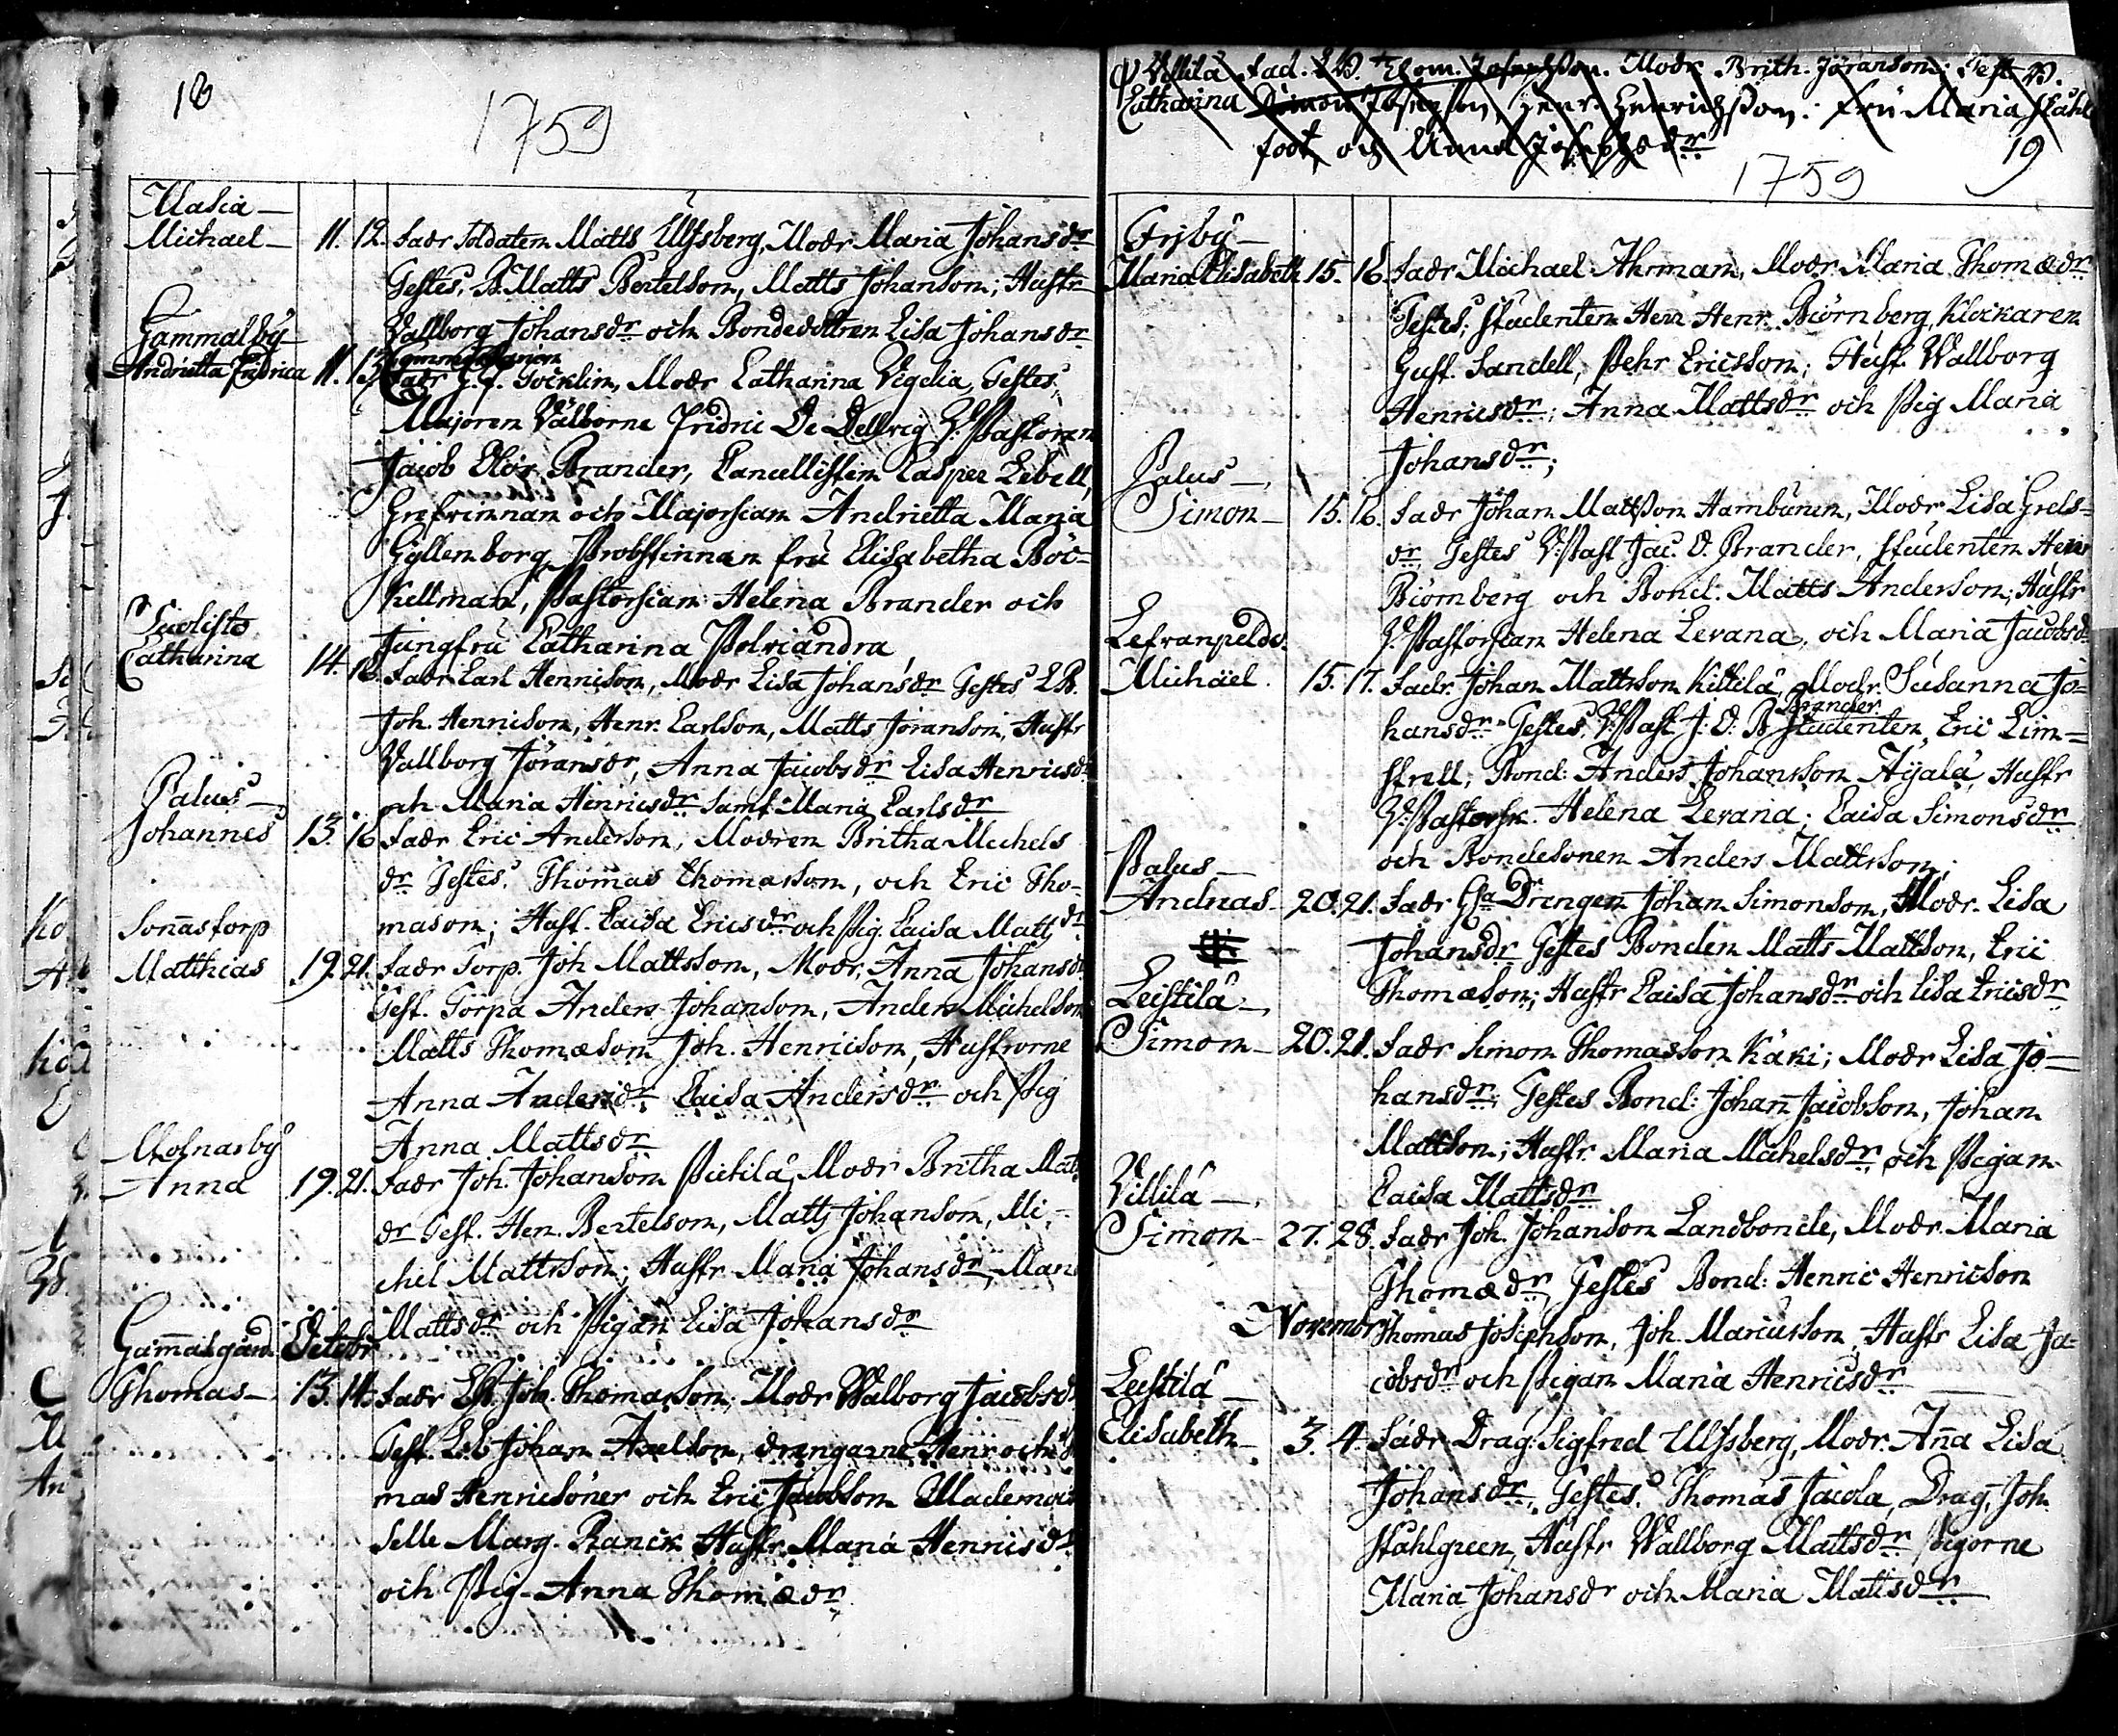 18
1759
Masia
Michael 11. 12. Fadr Soldaten Matts Ulfsberg, Modr Maria Johansdr
Testes, B. Matts Bertelson, Matts Johanson; Hustr
Gammalby Wallborg Johansdr och Bondedottren Lisa Johansdr
Andrietta Fridrica 11. 13. Fadr G. G. Tocklin, Modr Catharina Vigelia, Testes,
Majoren Välborne Fridric De Dellvig V. Pastoren
Jacob Olof Brander, Cancellisten Casper Lebell,
Grefvinnan och Majorscan Andrietta Maria
Gyllenborg, Probstinnan fru Elisabetha Böc-
kellman, Pastorscan Helena Brander och
Jungfru Catharina Polviandra
Catharina 14. 16. Fadr Carl Henricson, Modr Lisa Johansdr Testes LB.
Joh. Henricson, Henr. Carlson, Matts Jöranson, Hustr
Wallborg Jöransdr, Anna Jacobsdr Lisa Henricsdr
Palus och Maria Henricsdr samt Maria Carlsdr
Johannes 13. 16 Fadr Eric Anderson, Modren Britha Michels
dr Testes. Thomas Thomasson, och Eric Tho-
Sonnastorp mason; Hust. Caisa Ericsdr och Pig. Caisa Mattsdr
Matthias 19. 21. Fadr Torp. Joh Mattsson, Modr. Anna Johansdr
Test. Torpa Anders Johanson, Anders Michelson
Matts Thomæson Joh. Henricson, Hustrorne
Anna Andersdr Caisa Andersdr och Pig
Molnarby Anna Mattsdr
Anna 19. 21. Fadr Joh. Johanson Pietilä, Modr Britha Matts
dr Test. Hen. Bertelson, Matts Johanson, Mi-
chel Mattsson; Hustr Maria Johansdr, Maria
Mattsdr och Pigan Lisa Johansdr
Gammalgård Octobr
Thomas 13. 14. Fadr LB. Joh. Thomasson, Modr Walborg Jacobsdr
Test. LB. Johan Axelson, drengarne Henr och Tho
mas Henricsöner och Eric Jacobson Mademoi
selle Marg. Ranck Hustr. Maria Henricsdr
och Pig. Anna Thomædr
Villilä Fad. LB. Thom. Josephson. Modr Brith. Jöransdr; Test. B.
Catharina Simon Josephson, Henr. Henrichson: fru Maria Ståhl
fodt, och Anna Josephsdr
19
1759
Fryby
Maria Elisabeth 15. 16. Fadr Michael Ahrman, Modr Maria Thomædr
Testes; Studenten Herr Henr. Biörnberg, Klockaren
Gust. Sandell, Pehr Ericsson; Hust. Wallborg
Henricsdr; Anna Mattsdr och Pig Maria
Palus Johansdr;
Simon 15. 16. Fadr Johan Mattsson Hambunen, Modr Lisa Grels=
dr Testes V: Past Jac. O. Brander, Studenten Herr
Biörnberg och Bond. Matts Anderson; Hustr
V: Pastorscan Helena Levana, och Maria Jacobsdr
Michäel. 15. 17. Fadr. Johan Mattsson Killilä Modr. Susanna Jo=
Brander
hansdr Testes, V: Past J. O. B Studenten, Eric Lim=
strell, Bond: Anders Johansson Äyälä, Hustr
V: Pastorsk. Helena Levana; Caisa Simonsdr
Palus och Bondesonen Anders Mattsson;
Andreas 20. 21. Fadr Drengen Johan Simonson, Modr. Lisa
Johansdr Testes Bonden Matts Mattson, Eric
Leistilä Thomæson; Hustr Caisa Johansdr och Lisa Ericsdr
Simon 20. 21. Fadr Simon Thomasson Käki; Modr Lisa Jo=
hansdr; Testes Bond: Johan Jacobson, Johan
Mattson; Hustr. Maria Michelsdr och Pigan
Villilä Caisa Mattsdr
Simon 27. 28. Fadr Joh. Johanson Landbonde, Modr. Maria
Thomædr, Testes Bond: Henric Henricson
Novembr Thomas Josephson, Joh. Marcusson, Hustr Lisa Ja-
Leistilä cobsdr och Pigan Maria Henricsdr
Elisabeth 3. 4. Fadr Drag: Sigfred Ulfsberg, Modr. Anna Lisa
Johansdr, Testes. Thomas Jacola, Drag. Joh.
Ståhlgreen, Hustr Wallborg Mattsdr Pigorne
Maria Johansdr och Maria Mattsdr